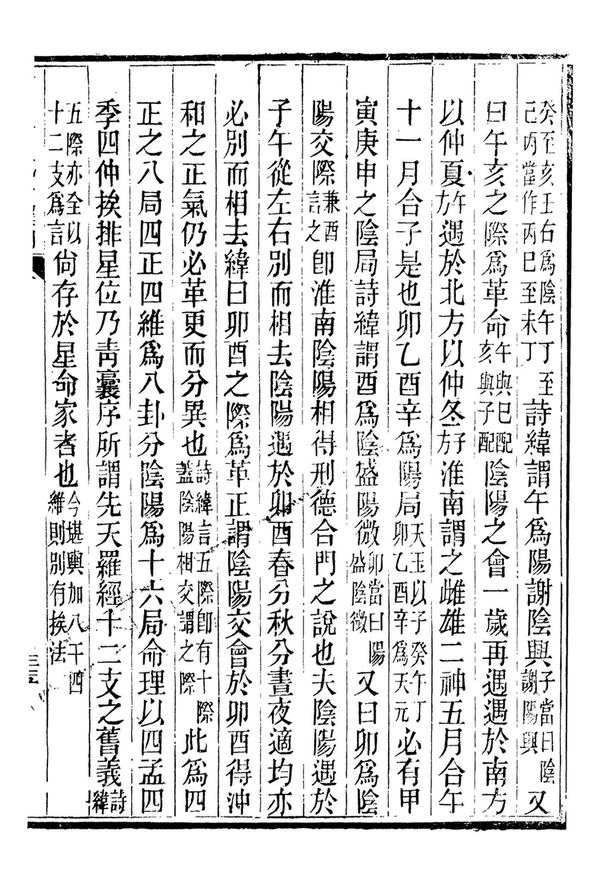 癸至亥壬右爲陰午丁至己丙當作丙巳至未丁詩緯謂午爲陽謝陰興子當曰陰謝陽興又
曰午亥之際爲革命午與巳配亥與子配陰陽之會一歲再遇遇於南方
以仲夏午於遇於北方以仲冬子於淮南謂之雌雄二神五月合午
十一月合子是也卯乙酉辛爲陽局天玉以子癸午丁卯乙酉辛爲天元必有甲
寅庚申之陰局詩緯謂酉爲陰盛陽微卯當曰陽盛陰微又曰卯爲陰
陽交際兼酉言之卽淮南陰陽相得刑德合門之說也夫陰陽遇於
子午從左右別而相去陰陽遇於卯酉春分秋分晝夜適均亦
必別而相去緯曰卯酉之際爲革正謂陰陽交會於卯酉得沖
和之正氣仍必革更而分異也詩緯言五際卽有十際蓋陰陽相交謂之際此爲四
正之八局四正四維爲八卦分陰陽爲十六局命理以四孟四
季四仲挨排星位乃靑囊序所謂先天羅經十二支之舊義詩緯
五際亦全以十二支爲言尙存於星命家者也今堪輿加八干四維則別有挨法
三五